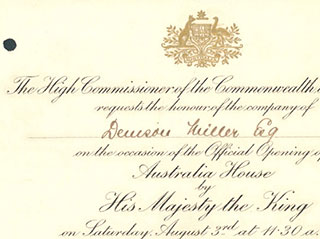 The High Commissioner of the Commonwealth
requests the honour of the company of
Denison Miller Esq
on the occasion of the Official Opening of
Australia House
by
His Majesty the King
on Saturday, August 3rd at 11.30 a.